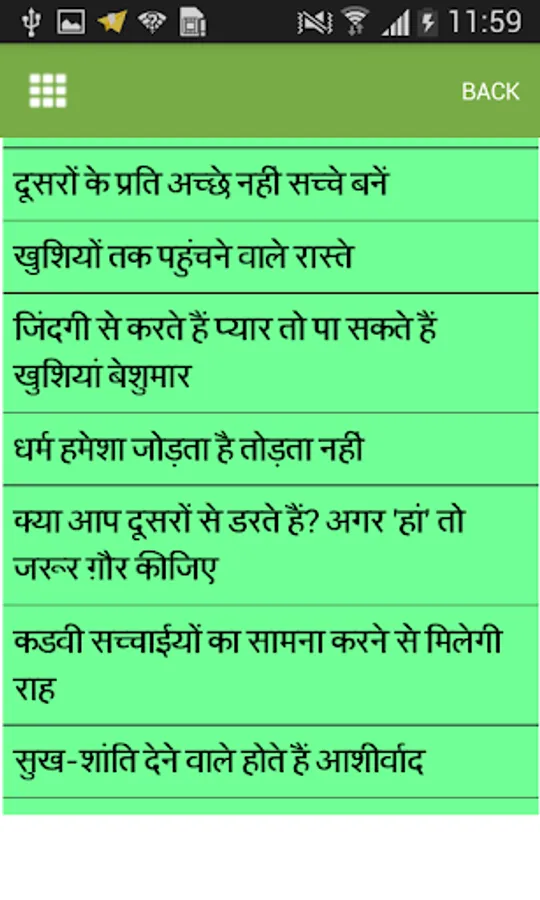 11:59
BACK
दूसरों के प्रति अच्छे नहीं सच्चे बनें
खुशियों तक पहुंचने वाले रास्ते
जिंदगी से करते हैं प्यार तो पा सकते हैं
खुशियां बेशुमार
धर्म हमेशा जोड़ता है तोड़ता नहीं
क्या आप दूसरों से डरते हैं? अगर 'हां' तो
जरूर ग़ौर कीजिए
कडवी सच्चाईयों का सामना करने से मिलेगी
राह
सुख-शांति देने वाले होते हैं आशीर्वाद